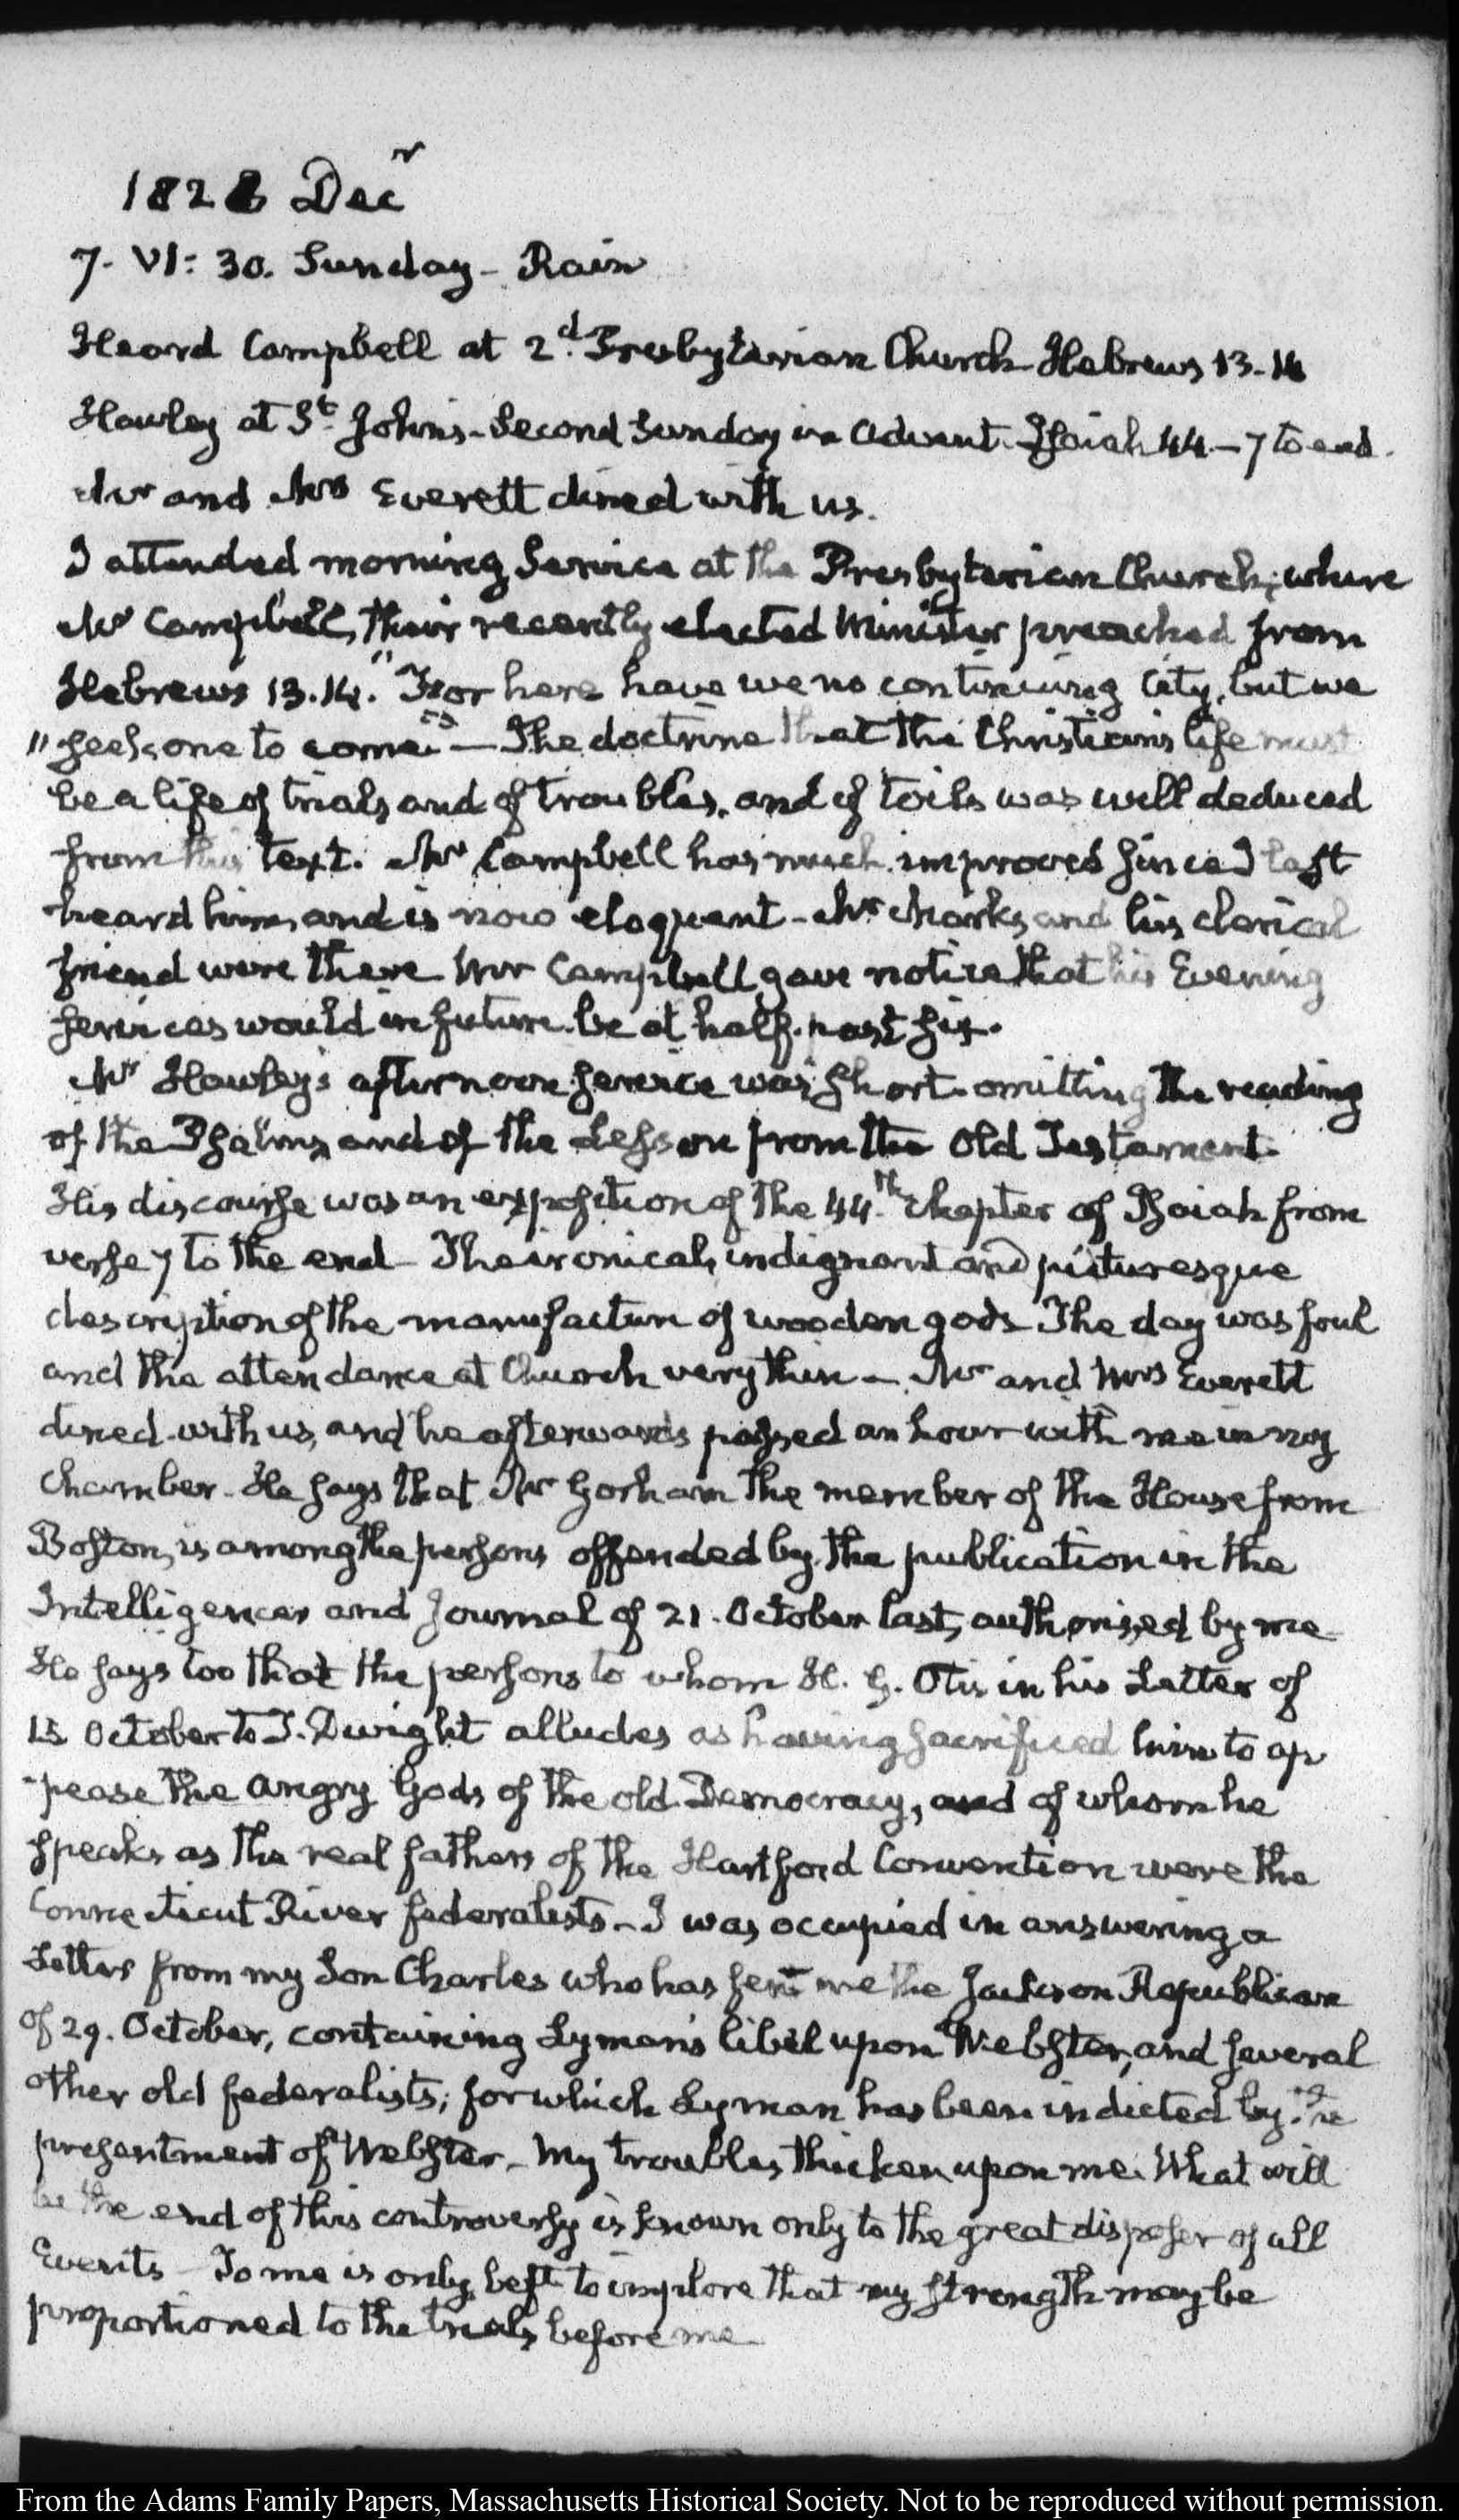 1828 Decr
7. VI: 30. Sunday - Rain
Heard Campbell at 2d. Presbyterian Church Hebrews 13.14
Hawley at St. John's - Second Sunday in Advent. Isaiah 44. - 7 to end.
Mr and Mrs Everett dined with us.
I attended morning Service at the Presbyterian Church; where
Mr Campbell, their recently elected Minister preached from
Hebrews 13.14. "For here have we no continuing City, but we
"seek one to come" - The doctrine that the Christian's life must
be a life of trials and of troubles, and of toils was well deduced
from this text. Mr Campbell has much improved since I last
heard him, and is now eloquent - Mr Marks, and his clerical
friend were there Mr Campbell gave notice that his Evening
services would in future be at half past six.
Mr Hawley's afternoon service was short omitting the reading
of the Psalms, and of the Lesson from the Old Testament.
His discourse was an exposition of the 44th. chapter of Isaiah from
verse 7 to the end - The ironical, indignant and picturesque
description of the manufacture of wooden gods The day was foul
and the attendance at Church very thin - Mr and Mrs Everett
dined with us, and he afterwards passed an hour with me in my
Chamber. He says that Mr Gorham the member of the House from
Boston, is among the persons offended by the publication in the
Intelligencer and Journal of 21. October last, authorised by me
He says too that the persons to whom H. G. Otis in his Letter of
15 October to T. Dwight alludes as having sacrificed him to ap
-pease the angry Gods of the old Democracy, and of whom he
speaks as the real fathers of the Hartford Convention were the
Connecticut River federalists - I was occupied in answering a
Letter from my Son Charles who has sent me the Jackson Republican
of 29. October, containing Lyman's libel upon Webster, and several
other old federalists; for which Lyman has been indicted by the
presentment of Webster - My troubles thicken upon me. What will
be the end of this controversy is known only to the great disposer of all
Events - To me is only left to implore that my strength may be
proportioned to the trials before me
From the Adams Family Papers, Massachusetts Historical Society. Not to be reproduced without permission.